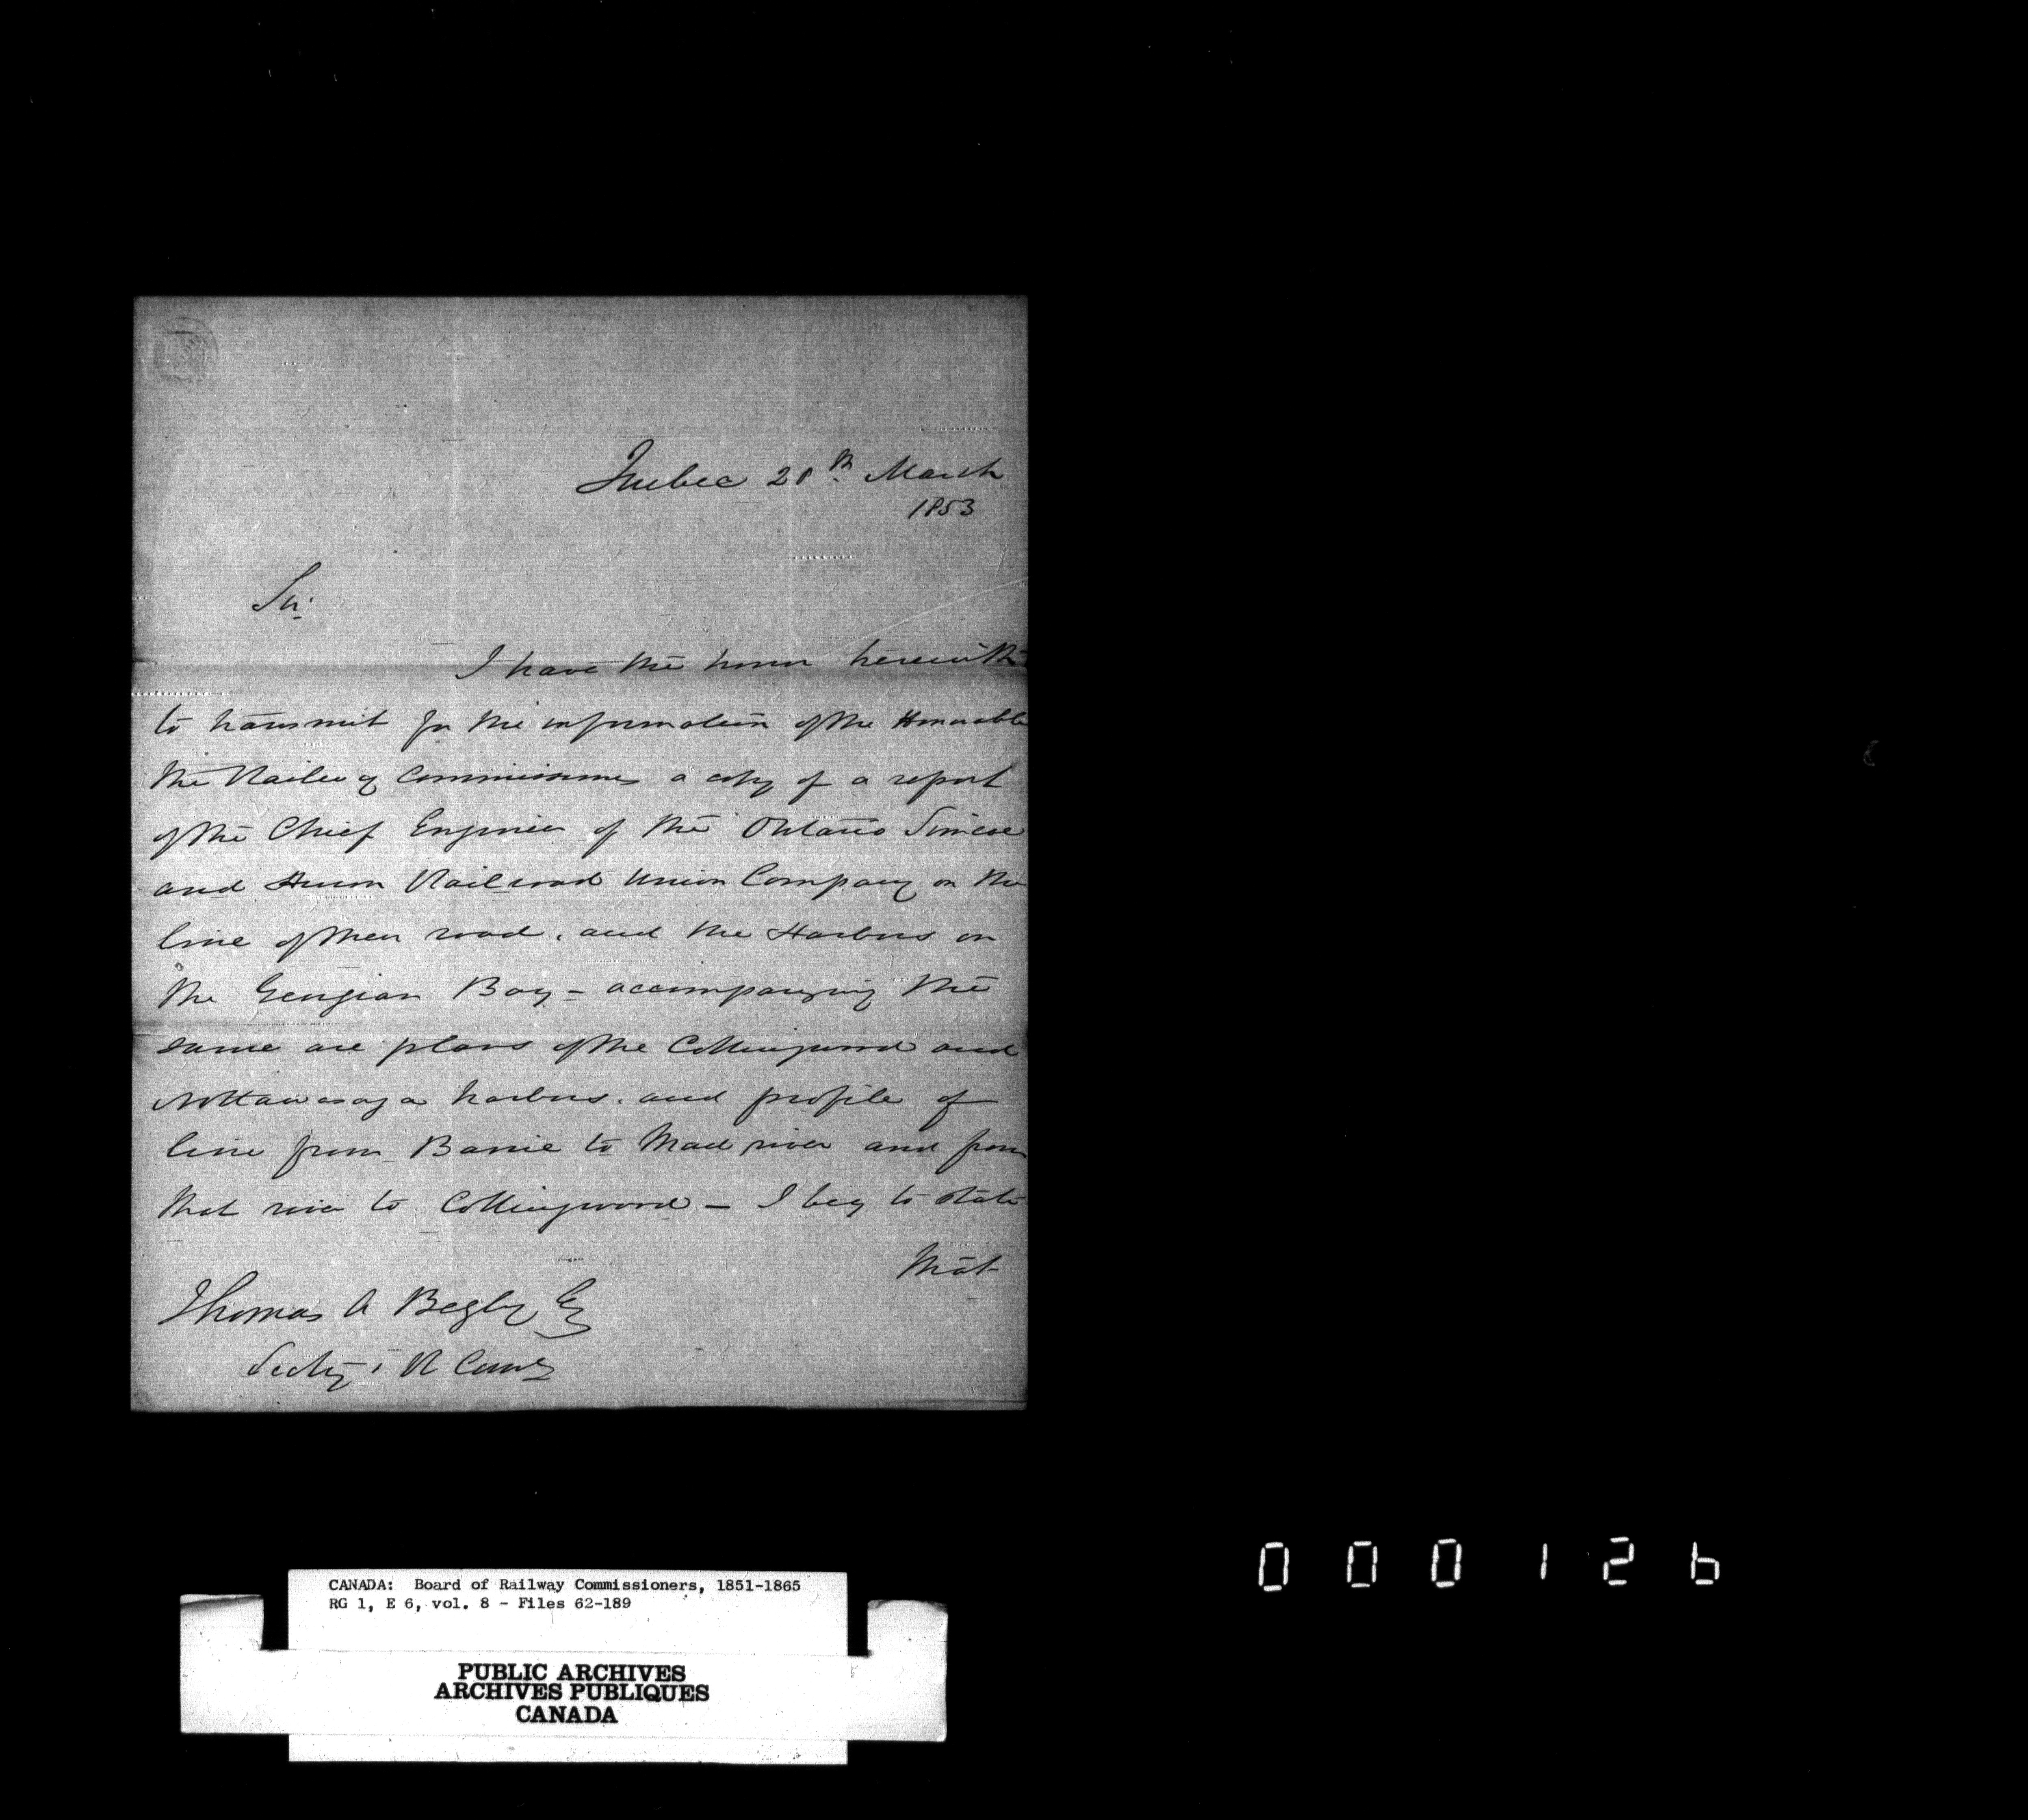 Quebec 28th March
1853
Sir
I have the honor herewith
to transmit for the information of the Honorable
the Railway Commissioners a copy of a report
of the Chief Engineer of the Ontario Simcoe
and Huron Railroad Union Company on the
line of their road, and the Harbors on
the Georgian Bay - accompanying the
same are plans of the Collingwood and
Nottawasaga harbors. and profile of
line from Barrie to Mad river and from
that river to Collingwood - I beg to state
that
Thomas A Begly Esq
Secty R Comrs
CANADA: Board of Railway Commissioners, 1851-1865
RG 1, E 6, vol. 8 - Files 62-189
PUBLIC ARCHIVES
ARCHIVES PUBLIQUES
CANADA
000126